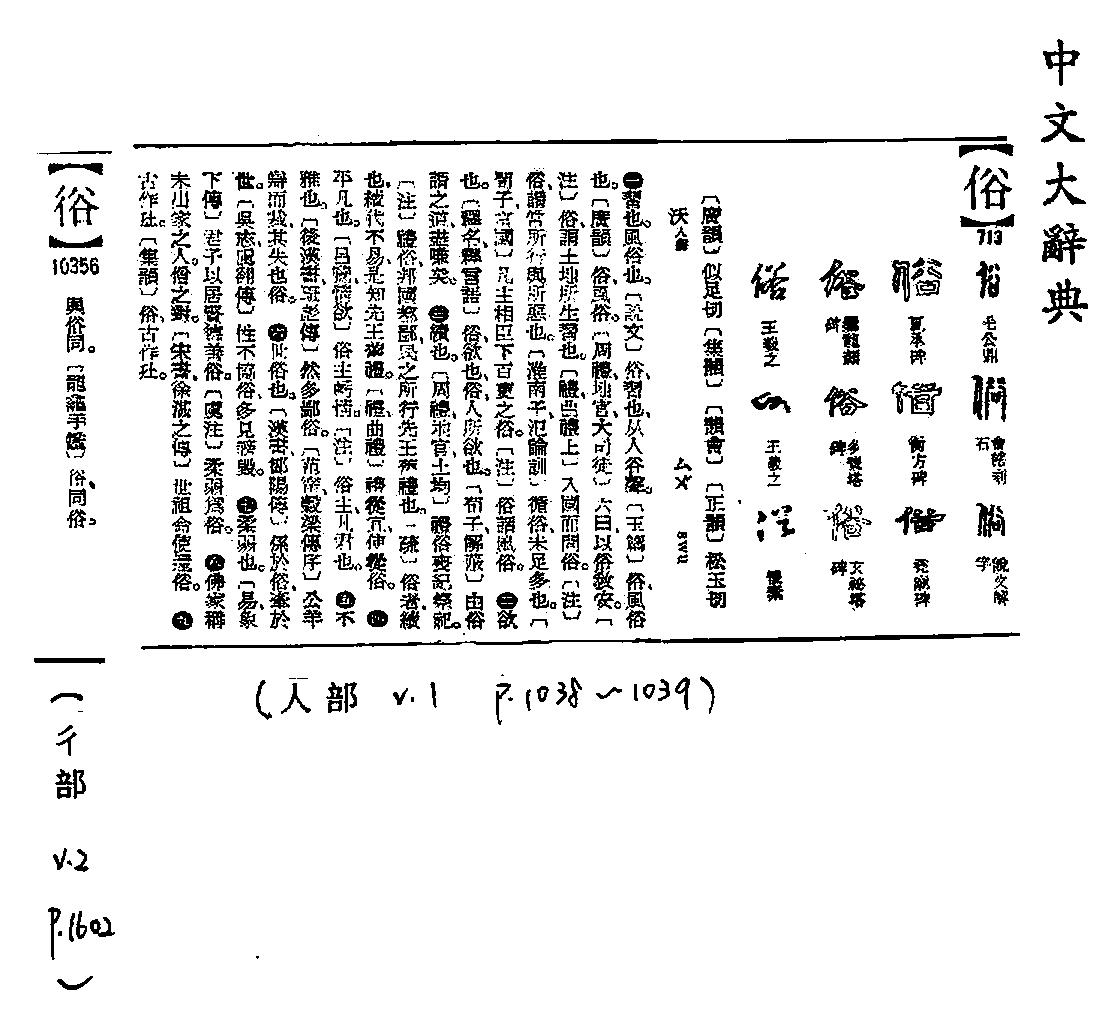 中文大辭典
【俗】
713
毛公鼎
會稽刻石
說文解字
夏承碑
衡方碑
爨龍顏碑
多寶塔碑
玄祕塔碑
王羲之
王獻之
懷素
〔廣韻〕似足切〔集韻〕〔韻會〕〔正韻〕松玉切
沃入聲 ㄙㄨˊ swu
㊀習也。風俗也。〔說文〕俗、習也、从人谷聲。〔玉篇〕俗、風俗
也。〔廣韻〕俗、風俗。〔周禮、地官、大司徒〕六曰以俗敎安。〔
注〕俗謂土地所生習也。〔禮、曲禮上〕入國而問俗。〔注〕
俗謂常所行與所惡也。〔淮南子、氾論訓〕循俗未足多也。〔
荀子、富國〕凡主相臣下百吏之俗。〔注〕俗謂風俗。㊁欲
也。〔釋名、釋言語〕俗、欲也、俗人所欲也。〔荀子、解蔽〕由俗
謂之道盡嗛矣。㊂續也。〔周禮、地官、土均〕禮俗喪記祭祀。
〔注〕禮俗、邦國都鄙民之所行先王舊禮也。〔疏〕俗者、續
也、續代不易、是知先王舊禮。〔禮、曲禮〕禮從宜、使從俗。㊃
平凡也。〔呂覽、情欲〕俗主虧情。〔注〕俗主、凡君也。㊄不
雅也。〔後漢書、班彪傳〕然多鄙俗。〔范甯、穀梁傳序〕公羊
辯而裁、其失也俗。㊅世俗也。〔漢書、鄒陽傳〕係於俗、牽於
世。〔吳志、虞翻傳〕性不協俗、多見謗毀。㊆柔弱也。〔易、象
下傳〕君子以居賢德善俗。〔虞注〕柔弱爲俗。㊇佛家稱
未出家之人、僧之對。〔宋書、徐湛之傳〕世祖命使還俗。㊈
古作。〔集韻〕俗、古作。
(人部 v.1 p.1038~1039)
【㣉】
10356
與俗同。〔龍龕手鑑〕㣉、同俗。
(彳部 v.2 p.1602)